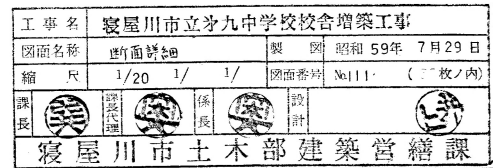 工事名 寝屋川市立㐧九中学校校舎増築工事
図面名称 断面詳細 製図 昭和59年7月29日
縮尺 1/20 1/ 1/ 図面番号 No111. ( 枚ノ内)
課長 課長代理 係長 設計
寝屋川市土木部建築営繕課